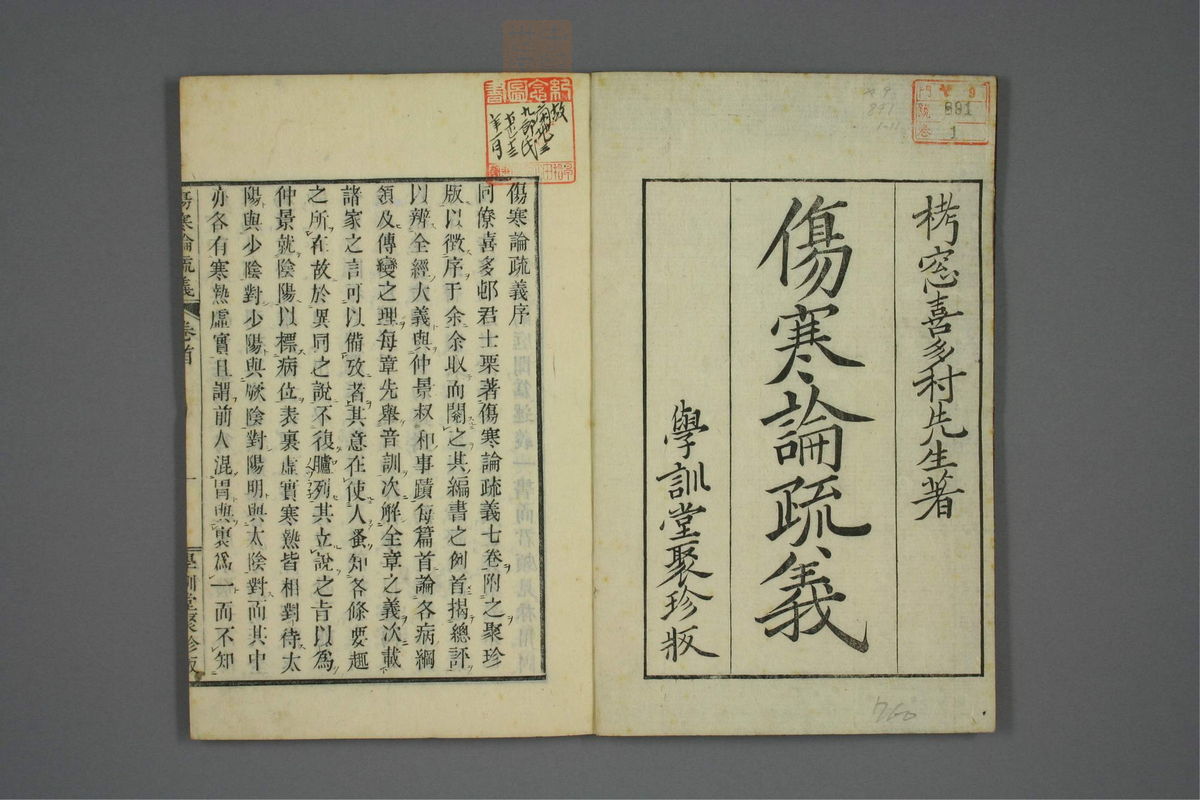 栲窓喜多村先生著
傷寒論疏義
學訓堂聚珍版
門 9
號 891
卷 1
760
紀念圖書
故
九郎氏
傷寒論疏義序
同僚喜多邨君士栗著傷寒論疏義七卷附之聚珍
版以徴序于余余取而閱之其編書之例首揭總評
以辨全經大義與仲景叔和事蹟每篇首論各病綱
領及傳變之理每章先舉音訓次解全章之義次載
諸家之言可以備攷者其意在使人蚤知各條要趣
之所在故於異同之說不復臚列其立說之旨以爲
仲景就陰陽以標病位表裏虛實寒熱皆相對待太
陽與少陰對少陽與厥陰對陽明與太陰對而其中
亦各有寒熱虛實且謂前人混胃與裏爲一而不知
傷寒論疏義 卷首 一 學訓堂聚珍版